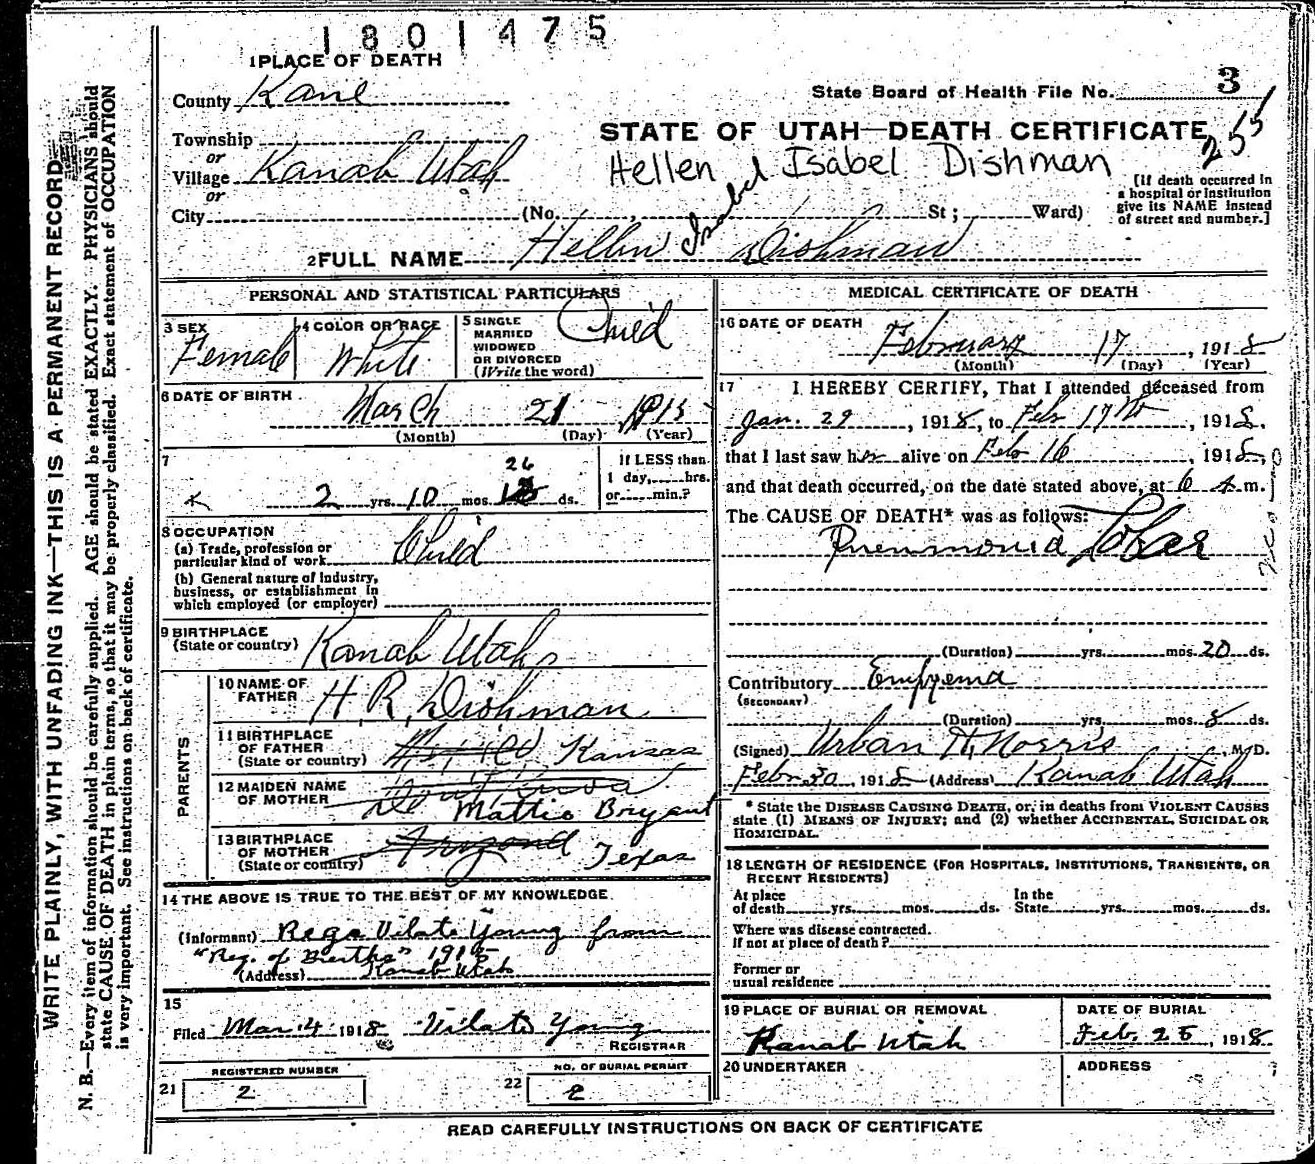 1801475
1 PLACE OF DEATH
County Kane
State Board of Health File No. 3
255
STATE OF UTAH—DEATH CERTIFICATE
Hellen Isabel Dishman
Township
or
Village Kanab Utah
or
City (No. , St; Ward)
[If death occurred in
a hospital or institution
give its NAME instead
of street and number.]
2 FULL NAME Hellen Isabel Dishman
PERSONAL AND STATISTICAL PARTICULARS
3 SEX
Female
4 COLOR OR RACE
White
5 SINGLE
MARRIED
WIDOWED
OR DIVORCED
(Write the word)
Child
6 DATE OF BIRTH
March 21 1915
(Month) (Day) (Year)
7
26
2 yrs. 10 mos. ds.
If LESS than
1 day, hrs.
or min.?
8 OCCUPATION
(a) Trade, profession or
particular kind of work Child
(b) General nature of industry,
business, or establishment in
which employed (or employer)
9 BIRTHPLACE
(State or country) Kanab Utah
PARENTS
10 NAME OF
FATHER H. R. Dishman
11 BIRTHPLACE
OF FATHER
(State or country) Kansas
12 MAIDEN NAME
OF MOTHER
Mattie Bryant
13 BIRTHPLACE
OF MOTHER
(State or country) Arizona Texas
14 THE ABOVE IS TRUE TO THE BEST OF MY KNOWLEDGE.
(Informant) Rega Vilate Young from
"Reg. of Births" 1915
(Address) Kanab Utah
15
Filed Mar. 4 1918 Vilate Young
REGISTRAR
21 REGISTERED NUMBER
2
22 NO. OF BURIAL PERMIT
2
MEDICAL CERTIFICATE OF DEATH
16 DATE OF DEATH
February 17, 1918
(Month) (Day) (Year)
17 I HEREBY CERTIFY, That I attended deceased from
Jan. 29, 1918, to Feb 17th, 1918.
that I last saw her alive on Feb 16, 1918,
and that death occurred, on the date stated above, at 6 A.m.
The CAUSE OF DEATH* was as follows:
Pneumonia Lobar
(Duration) yrs. mos. 20 ds.
Contributory Empyema
(SECONDARY)
(Duration) yrs. mos. 8 ds.
(Signed) Urban H. Norris, M.D.
Feb. 20, 1918 (Address) Kanab Utah
* State the DISEASE CAUSING DEATH, or, in deaths from VIOLENT CAUSES
state (1) MEANS OF INJURY; and (2) whether ACCIDENTAL, SUICIDAL OR
HOMICIDAL.
18 LENGTH OF RESIDENCE (FOR HOSPITALS, INSTITUTIONS, TRANSIENTS, OR
RECENT RESIDENTS)
At place
of death yrs. mos. ds.
In the
State yrs. mos. ds.
Where was disease contracted.
if not at place of death?
Former or
usual residence
19 PLACE OF BURIAL OR REMOVAL
Kanab Utah
DATE OF BURIAL
Feb. 25, 1918
20 UNDERTAKER
ADDRESS
READ CAREFULLY INSTRUCTIONS ON BACK OF CERTIFICATE
WRITE PLAINLY, WITH UNFADING INK—THIS IS A PERMANENT RECORD
N. B.—Every item of information should be carefully supplied. AGE should be stated EXACTLY. PHYSICIANS should
state CAUSE OF DEATH in plain terms, so that it may be properly classified. Exact statement of OCCUPATION
is very important. See instructions on back of certificate.